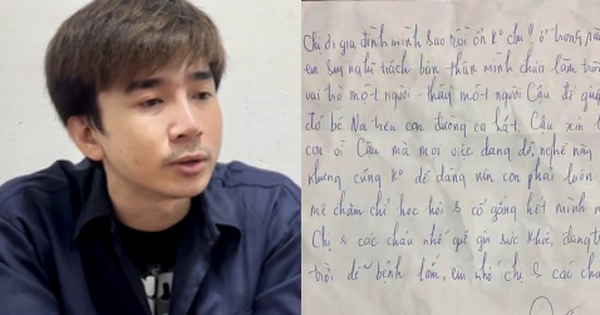 Chị di gia đình mình sao rồi ổn ko chị? ở trong
em suy nghĩ trách bản thân mình chưa làm trò
vai trò một người thầy một người Cậu để
đỡ bé Na trên con đường ca hát. Cậu xin
con vì Cậu mà mọi việc dang dở, nghề này
nhưng cũng ko dễ dàng nên con phải luôn
mê chăm chỉ học hỏi & cố gắng hết mình
Chị & các cháu nhớ giữ gìn sức khỏe, đang
trời dễ bệnh lắm, em nhớ chị & các